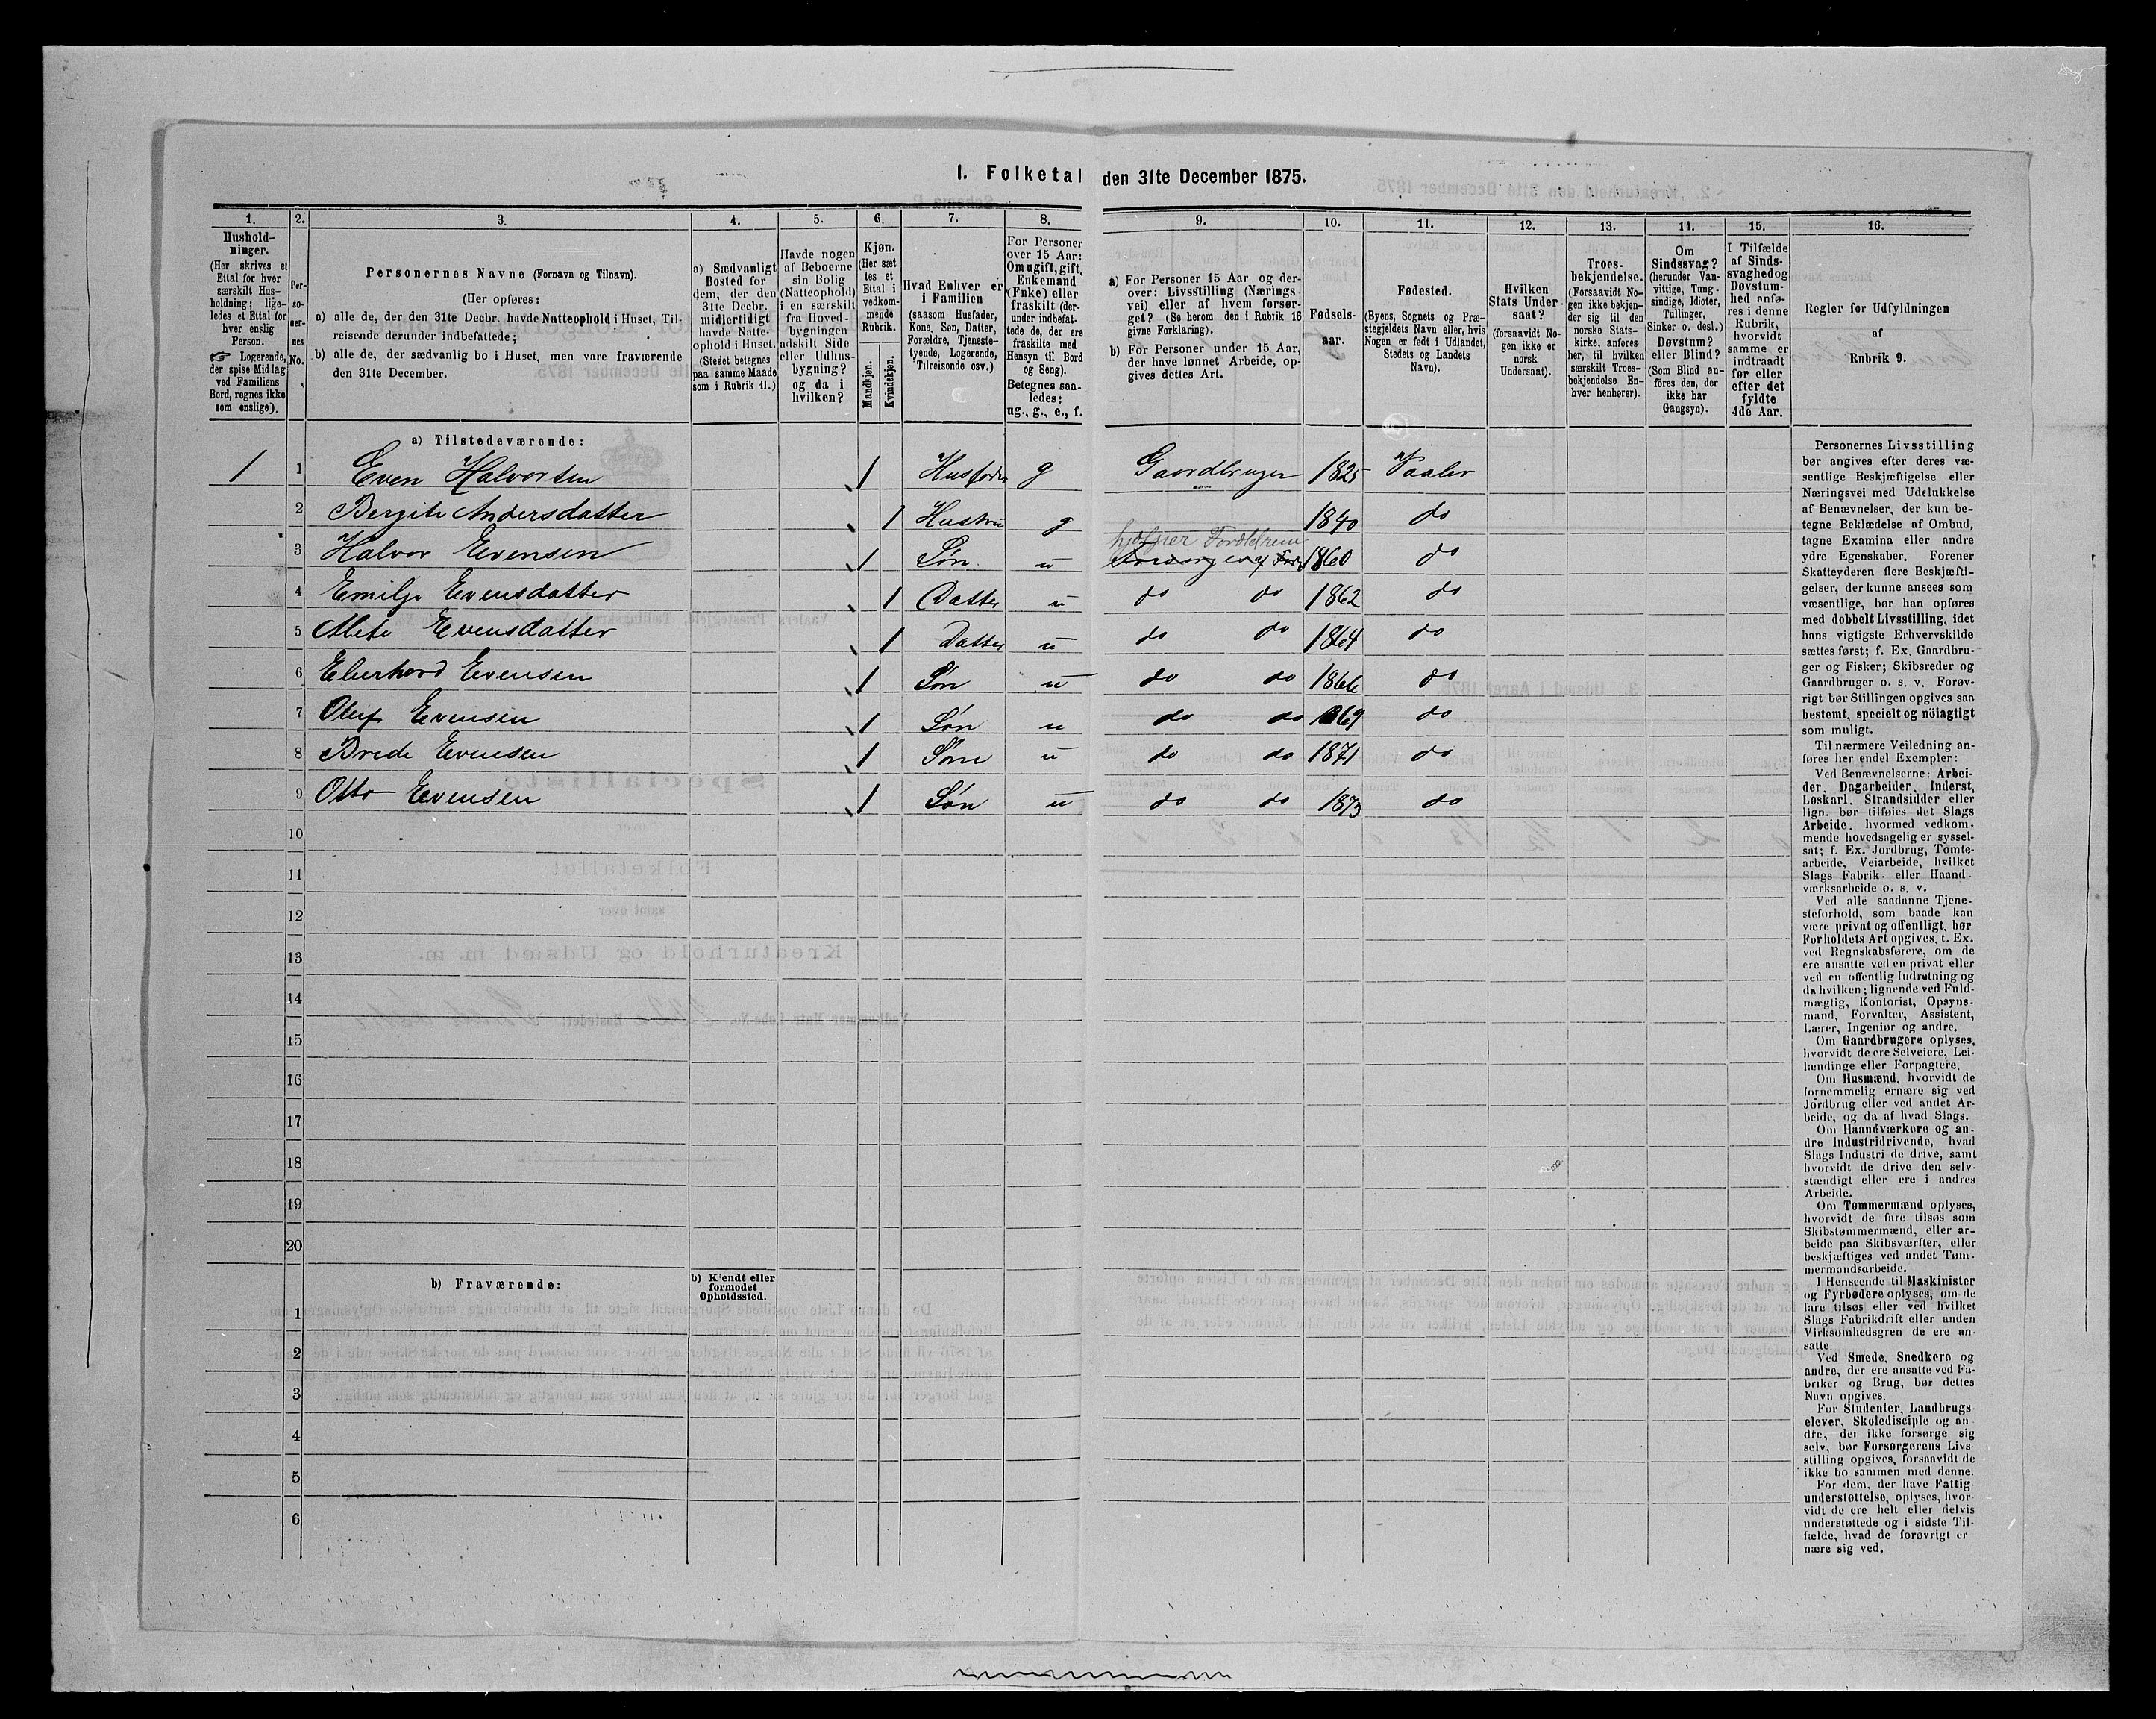 I. Folketal den 31te December 1875.
1. 2. 3. 4. 5. 6. 7. 8. 9. 10. 11. 12. 13. 14. 15. 16.
Hushold-
ninger.
(Her skrives et
Ettal for hver
særskilt Hus-
holdning; lige-
ledes et Ettal for
hver enslig
Person.
☞ Logerende,
der spise Middag
ved Familiens
Bord, regnes ikke
som enslige).
Per-
so-
ner-
nes
No.
Personernes Navne (Fornavn og Tilnavn).
(Her opføres:
a) alle de, der den 31te Decbr. havde Natteophold i Huset, Til-
reisende derunder indbefattede;
b) alle de, der sædvanlig bo i Huset, men vare fraværende
den 31te December.
a) Sædvanligt
Bosted for
dem, der den
31te Decbr.
midlertidigt
havde Natte-
ophold i Huset.
(Stedet betegnes
paa samme Maade
som i Rubrik 11.)
Havde nogen
af Beboerne
sin Bolig
(Natteophold)
i en særskilt
fra Hoved-
bygningen
adskilt Side
eller Udhus-
bygning?
og da i
hvilken?
Kjøn.
(Her sæt
tes et
Ettal i
vedkom-
mende
Rubrik.
Mandkjøn.
Kvindekjøn.
Hvad Enhver er
i Familien
(saasom Husfader,
Kone, Søn, Datter,
Forældre, Tjeneste-
tyende, Logerende,
Tilreisende osv.)
For Personer
over 15 Aar:
Om ugift, gift,
Enkemand
(Enke) eller
fraskilt (der-
under indbefat-
tede de, der ere
fraskilte med
Hensyn til Bord
og Seng).
Betegnes saa-
ledes:
ug., g., e., f.
a) For Personer 15 Aar og der-
over: Livsstilling (Nærings
vei) eller af hvem forsør-
get? (Se herom den i Rubrik 16
givne Forklaring).
b) For Personer under 15 Aar,
der have lønnet Arbeide, op-
gives dettes Art.
Fødsels-
aar.
Fødested.
(Byens, Sognets og Præ-
stegjeldets Navn eller, hvis
Nogen er født i Udlandet,
Stedets og Landets
Navn).
Hvilken
Stats Under-
saat?
(forsaavidt No-
gen ikke er
norsk
Undersaat).
Troes-
bekjendelse.
(Forsaavidt No-
gen ikke bekjen-
der sig til den
norske Stats-
kirke, anføres
her, til hvilken
særskilt Troes-
bekjendelse En-
hver henhører).
Om
Sindssvag?
(herunder Van-
vittige, Tung-
sindige, Idioter,
Tullinger,
Sinker o. desl.)
Døvstum?
eller Blind?
(Som Blind an-
føres den, der
ikke har
Gangsyn).
I Tilfælde
af Sinds-
svaghed og
Døvstum-
hed anfø-
res i denne
Rubrik,
hvorvidt
samme er
indtraadt
før eller
efter det
fyldte
4de Aar.
Regler for Udfyldningen
af
Rubrik 9.
a) Tilstedeværende:
1 1 Even Halvorsen 1 Husfader g Gaardbruger 1825 Vaaler
2 Bergite Andersdatter 1 Hustru g 1840 do
hjelper Forældrene
3 Halvor Evensen 1 Søn u 1860 do
4 Emilje Evensdatter 1 Datter u do do 1862 do
5 Mete Evensdatter 1 Datter u do do 1864 do
6 Eberhard Evensen 1 Søn u do do 1866 do
7 Oluf Evensen 1 Søn u do do 1869 do
8 Brede Evensen 1 Søn u do do 1871 do
9 Otto Evensen 1 Søn u do do 1873 do
10
11
12
13
14
15
16
17
18
19
20
b) Fraværende:
b) Kjendt eller
formodet
Opholdssted.
1
2
3
4
5
6
Personernes Livsstilling
bør angives efter deres væ-
sentlige Beskjæftigelse eller
Næringsvei med Udelukkelse
af Benævnelser, der kun be-
tegne Beklædelse af Ombud,
tagne Examina eller andre
ydre Egenskaber. Forener
Skatteyderen flere Beskjæfti-
gelser, der kunne ansees som
væsentlige, bør han opføres
med dobbelt Livsstilling, idet
hans vigtigste Erhvervskilde
sættes først; f. Ex. Gaardbru-
ger og Fisker; Skibsreder og
Gaardbruger o. s. v. Forøv-
rigt bør Stillingen opgives saa
bestemt, specielt og nöiagtigt
som muligt.
Til nærmere Veiledning an-
føres her endel Exempler:
Ved Benævnelserne: Arbei-
der, Dagarbeider, Inderst,
Løskarl, Strandsidder eller
lign. bør tilføies det Slags
Arbeide, hvormed vedkom-
mende hovedsagelig er syssel-
sat; f. Ex. Jordbrug, Tomte-
arbeide, Veiarbeide, hvilket
Slags Fabrik- eller Haand-
værksarbeide o. s. v.
Ved alle saadanne Tjene-
steforhold, som baade kan
være privat og offentligt, bør
Forholdets Art opgives, t. Ex.
ved Regnskabsførere, om de
ere ansatte ved en privat eller
ved en offentlig Indretning og
da hvilken; lignende ved Fuld-
mægtig, Kontorist, Opsyns-
mand, Forvalter, Assistent,
Lærer, Ingeniør og andre.
Om Gaardbrugere oplyses,
hvorvidt de ere Selveiere, Lei-
lændinge eller Forpagtere.
Om Husmænd, hvorvidt de
fornemmelig ernære sig ved
Jordbrug eller ved andet Ar-
beide, og da af hvad Slags.
Om Haandværkere og an-
dre Industridrivende, hvad
Slags Industri de drive, samt
hvorvidt de drive den selv-
stændigt eller ere i andres
Arbeide.
Om Tømmermænd oplyses,
hvorvidt de fare tilsøs som
Skibstømmermænd, eller ar-
beide paa Skibsværfter, eller
beskjæftiges ved andet Tøm-
mermandsarbeide.
I Henseende til Maskinister
og Fyrbødere oplyses, om de
fare tilsøs eller ved hvilket
Slags Fabrikdrift eller anden
Virksomhedsgren de ere an-
satte.
Ved Smede, Snedkere og
andre, der ere ansatte ved Fa-
briker og Brug, bør dettes
Navn opgives.
For Studenter, Landbrugs-
elever, Skoledisciple og an
dre, der ikke forsørge sig
selv, bør Forsørgerens Livs-
stilling opgives, forsaavidt de
ikke bo sammen med denne.
For dem, der have Fattig-
understøttelse, oplyses, hvor-
vidt de ere helt eller delvis
understøttede og i sidste Til-
fælde, hvad de forøvrigt er
nære sig ved.